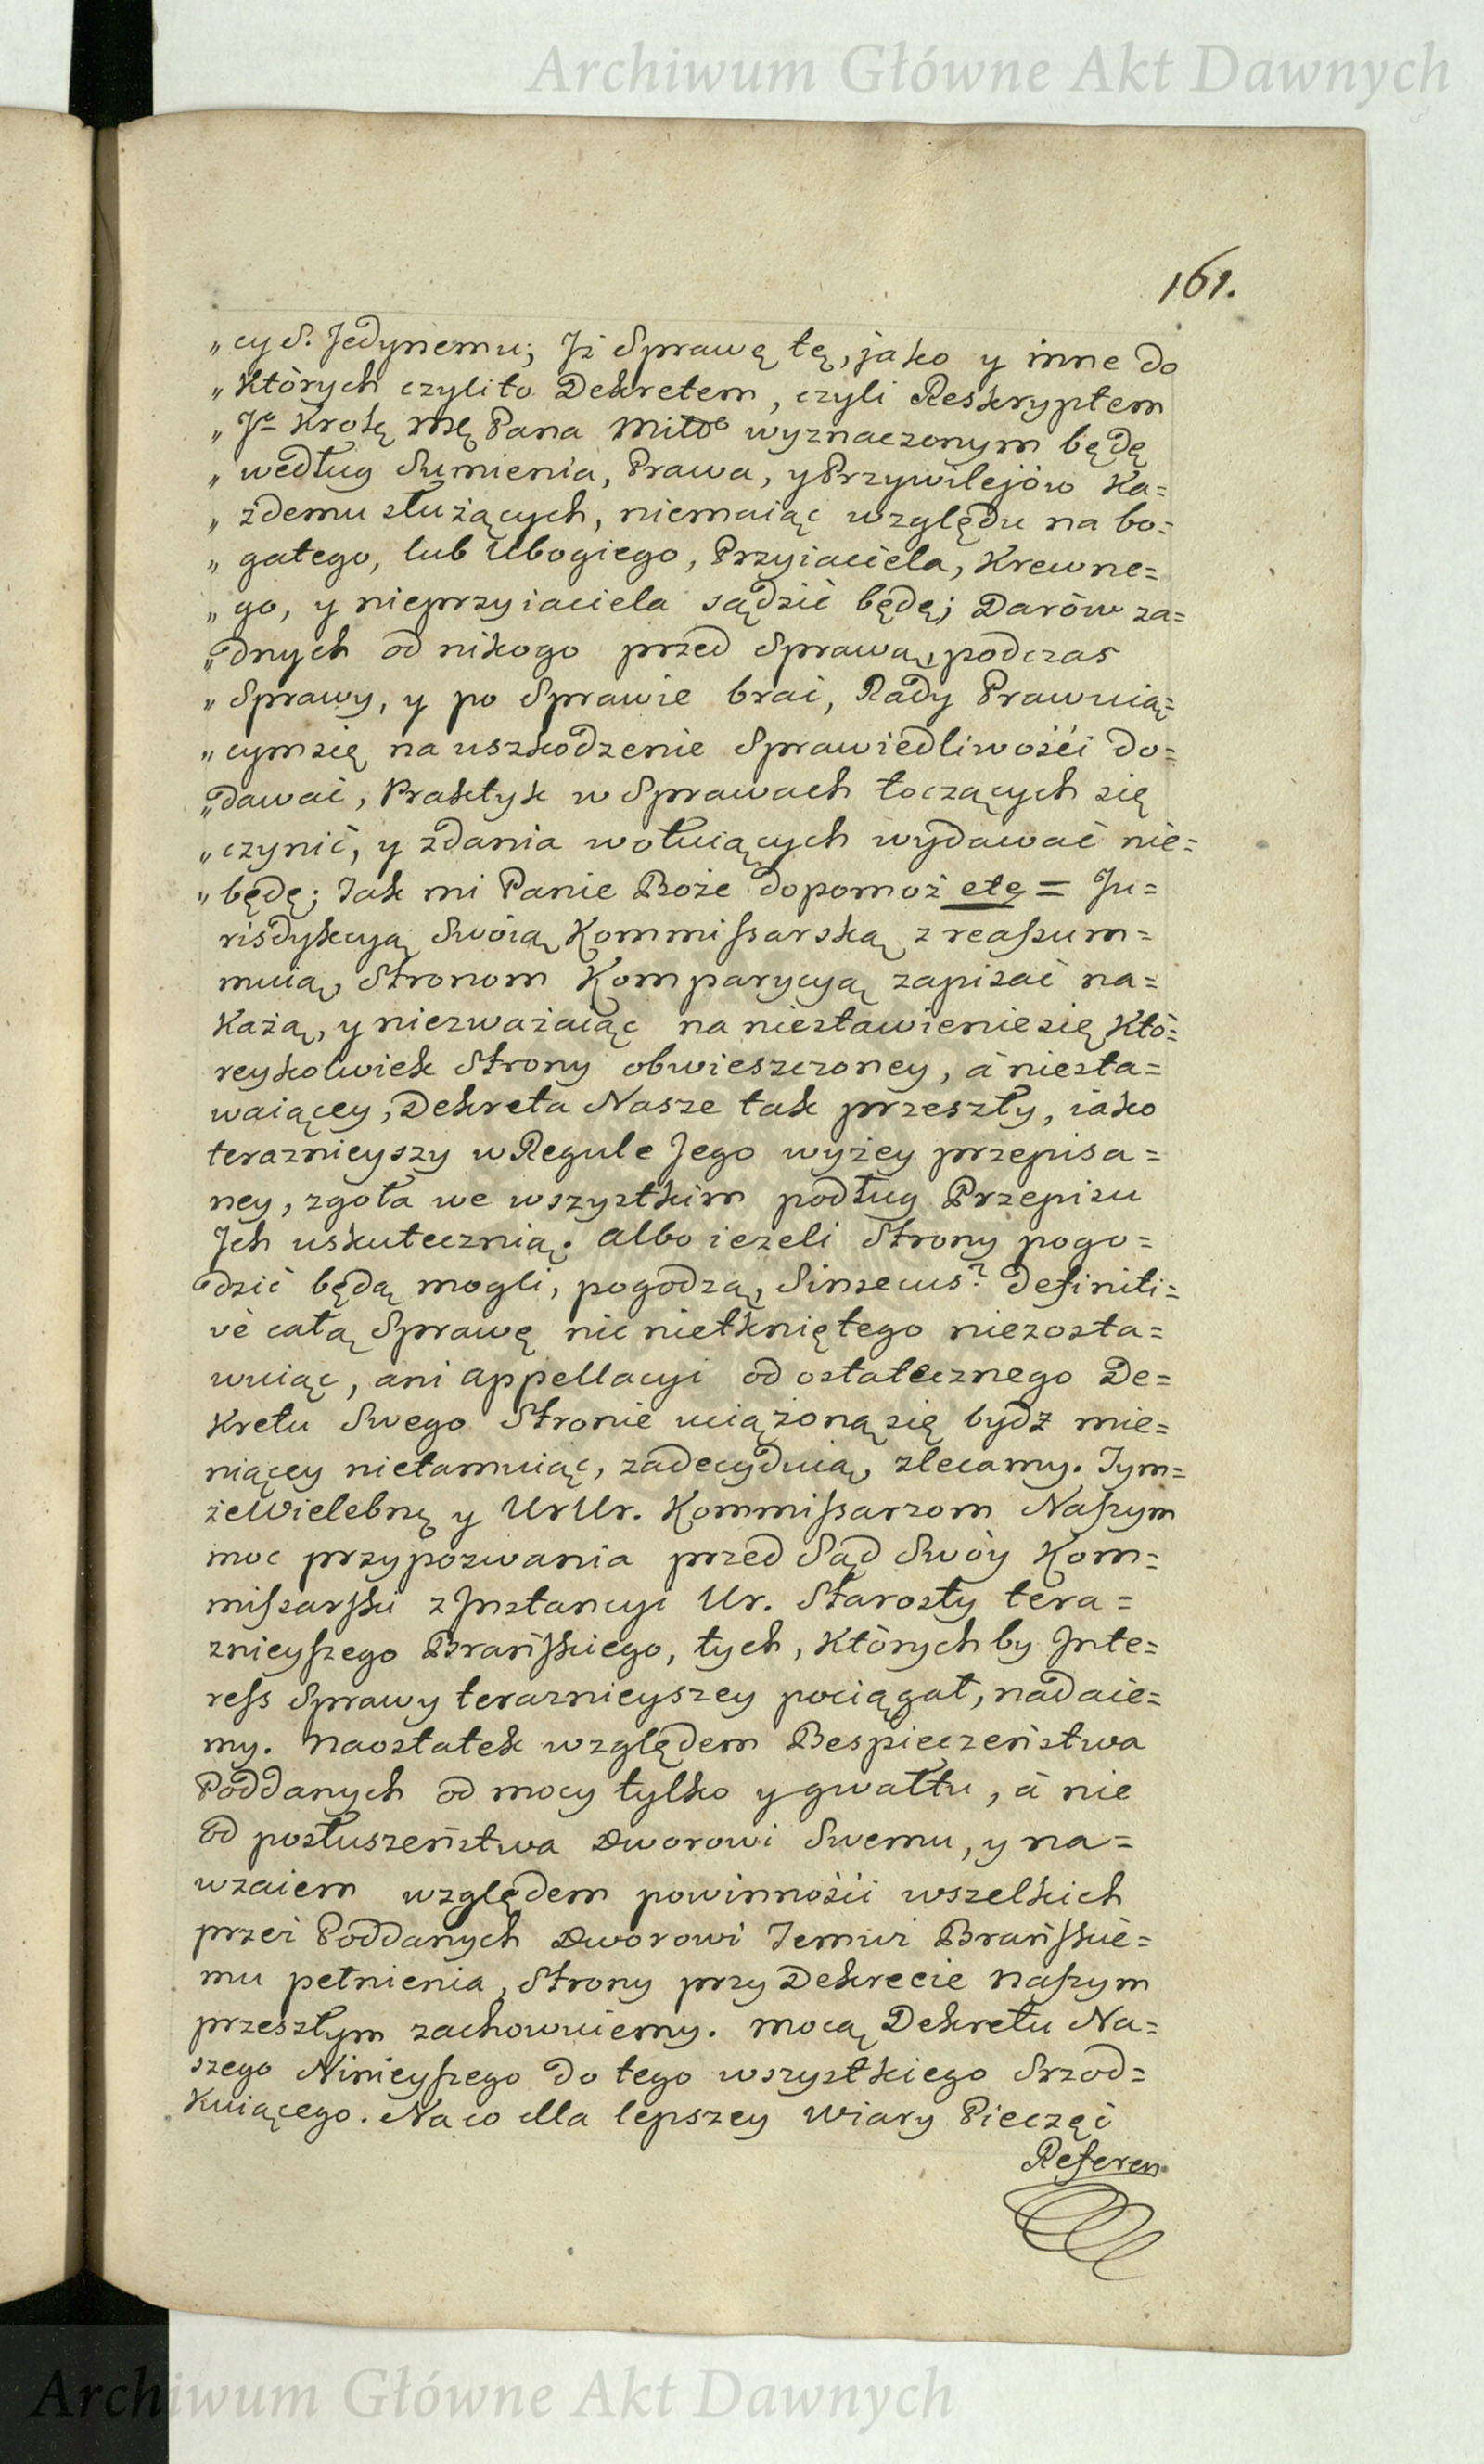 Archiwum Główne Akt Dawnych
161.
„cy S. Jedynemu; Iż Sprawę tę, jako y inne do
„Których czylito Dekretem, czyli Reskryptem
„Jº Krolę Mſ Pana Miłoº wyznaczonym będę
„według Sumienia, Prawa, y Przywilejów Ka=
„żdemu służących, niemaiąc względu na bo=
„gatego, lub Ubogiego, Przyiaciela, Krewne=
„go, y nieprzyiaciela sądzić będę; Darów ża=
„dnych od nikogo przed Sprawą, podczas
„Sprawy, y po Sprawie brać, Rady Prawuią=
„cymsię na uszkodzenie Sprawiedliwości do=
„dawać, Praktyk w Sprawach toczących się
„czynić, y zdania wotuiących wydawać nie=
„będę; Tak mi Panie Boże dopomoż etc = Ju=
risdykcyą Swoią Kommiſsarską zreaſsum=
muią, Stronom Komparycyą zapisać na=
Każą, y niezważaiąc na niestawieniesię Któ=
reykolwiek Strony obwieszczoney, á niesta=
waiącey, Dekreta Nasze tak przeszły, iako
teraznieyszy w Regule Jego wyżey przepisa=
ney, zgoła we wszystkim podług Przepisu
Jch uskutecznią. Albo ieżeli Strony pogo=
dzić będą mogli, pogodzą, Sinsecus? definiti=
vè całą Sprawę nic nietkniętego niezosta=
wuiąc, ani Appellacyi od ostatecznego De=
Kretu Swego Stronie uciążoną się bydź mie=
niącey nietamuiąc, zadecyduią, zlecamy. Tym=
że Wielebnę y UrUr. Kommiſsarzom Naſzym
moc przypozwania przed Sąd Swóy Kom=
miſsarſki z Jnstancyi Ur. Starosty tera=
znieyſzego Brańſkiego, tych, Którychby Jnte=
reſs Sprawy teraznieyszey pociągał, nadaie=
my. Naostatek względem Bespieczeństwa
Poddanych od mocy tylko y gwałtu, á nie
od posłuszeństwa Dworowi Swemu, y na=
wzaiem względem powinności wszelkich
przez Poddanych Dworowi Temuż Brańſkie=
mu pełnienia, Strony przy Dekrecie Naſzym
przeszłym zachowuiemy. Mocą Dekretu Na=
szego Ninieyſzego do tego wszystkiego Srzod=
Kuiącego. Na co dla lepszey Wiary Pieczęć
Referen
Archiwum Główne Akt Dawnych